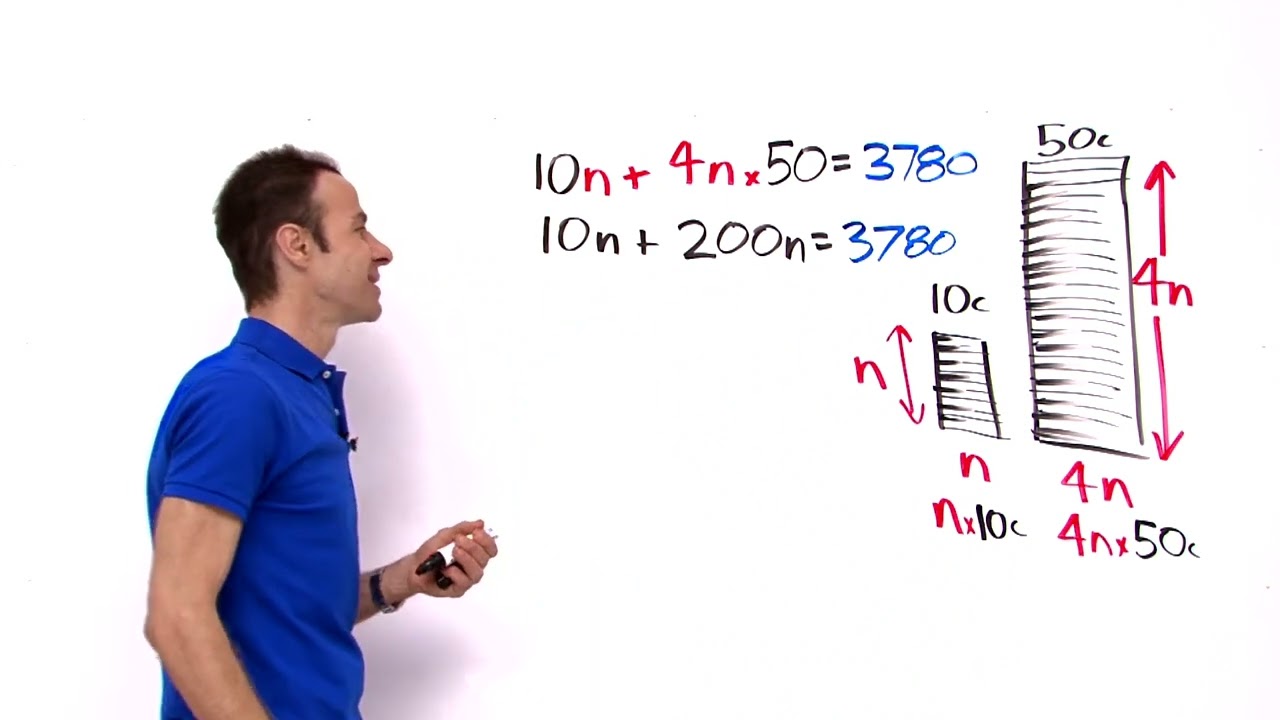 10n + 4n x 50 = 3780
10n + 200n = 3780
50c
10c
n
4n
n
4n
n x 10c
4n x 50c